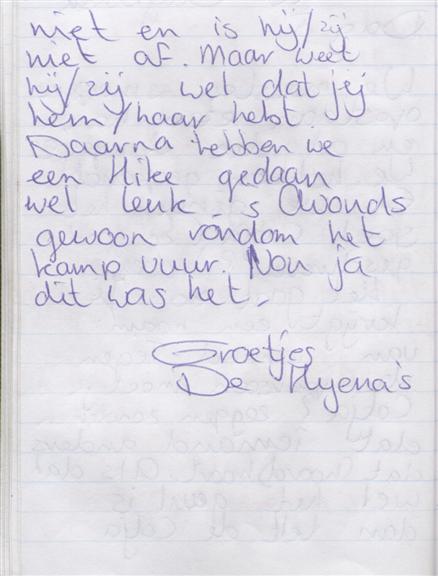 niet en is hij/zij
niet af. Maar weet
hij/zij wel dat jij
hem/haar hebt.
Daarna hebben we
een Hike gedaan
wel leuk 's Avonds
gewoon rondom het
kamp vuur. Nou ja
dit was het,
Groetjes
De Hyena's